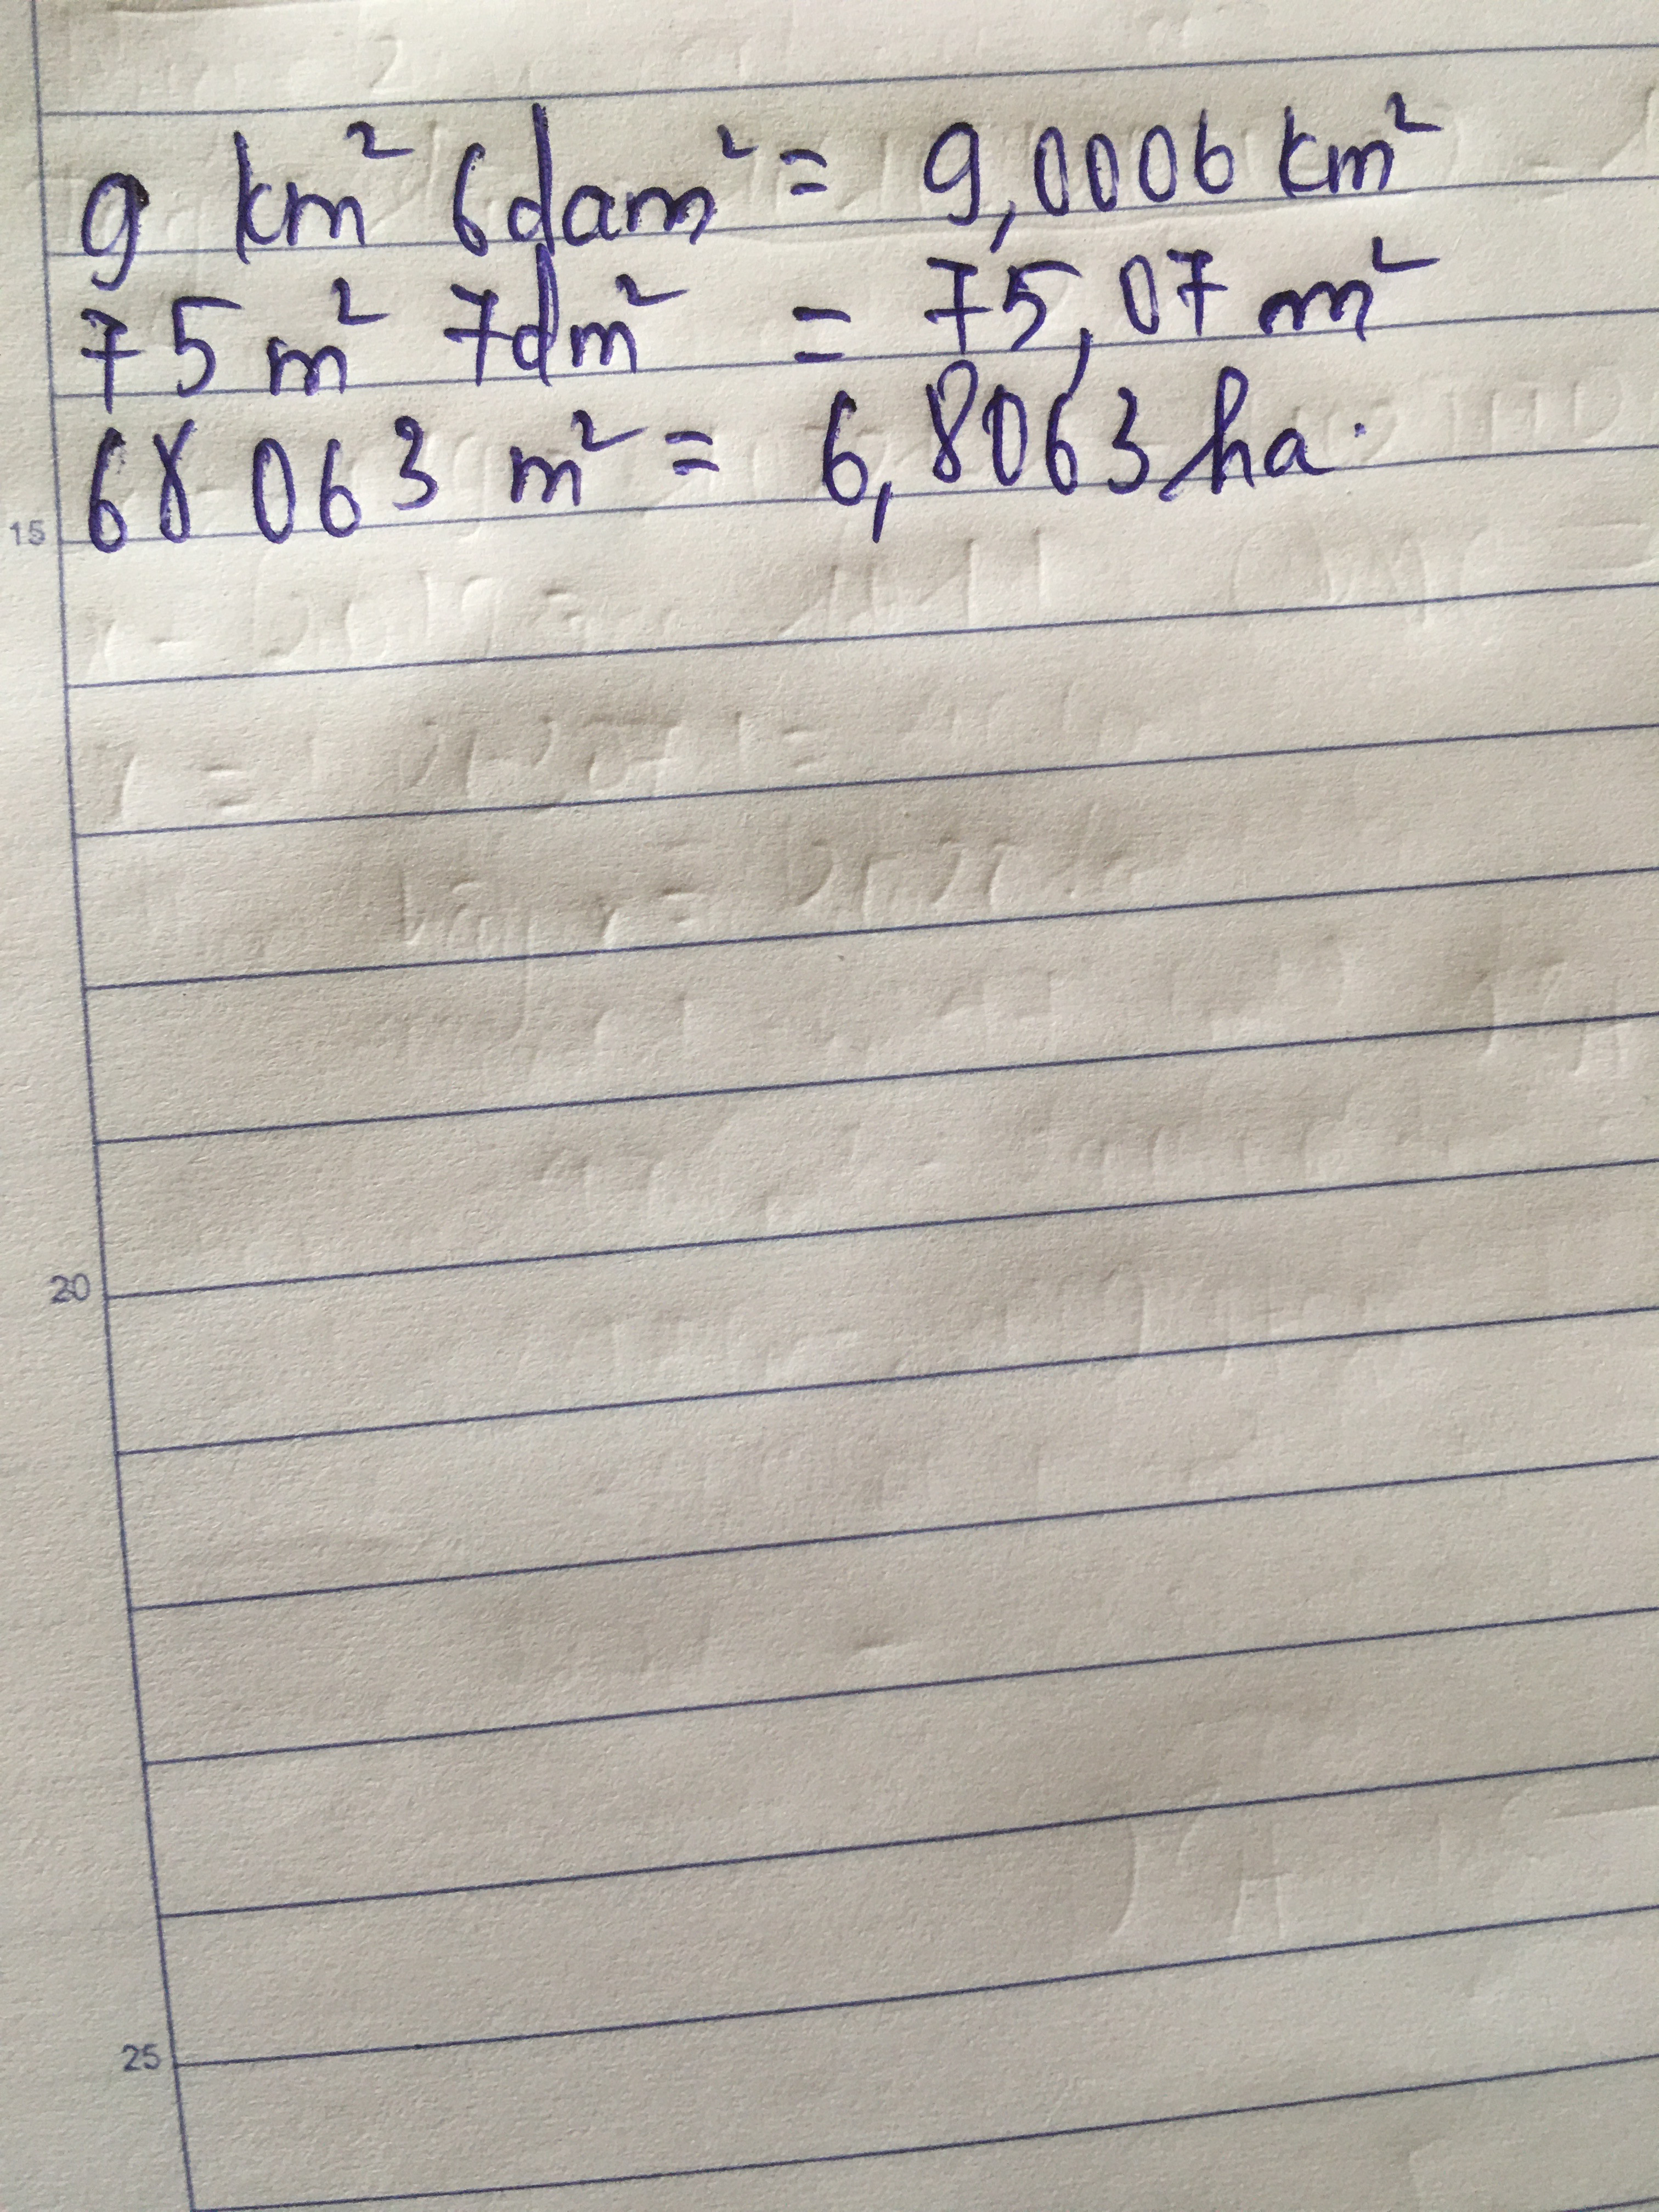 9 km² 6dam² = 9,0006 km²
75 m² 7dm² = 75,07 m²
68 063 m² = 6,8063 ha.
15
20
25